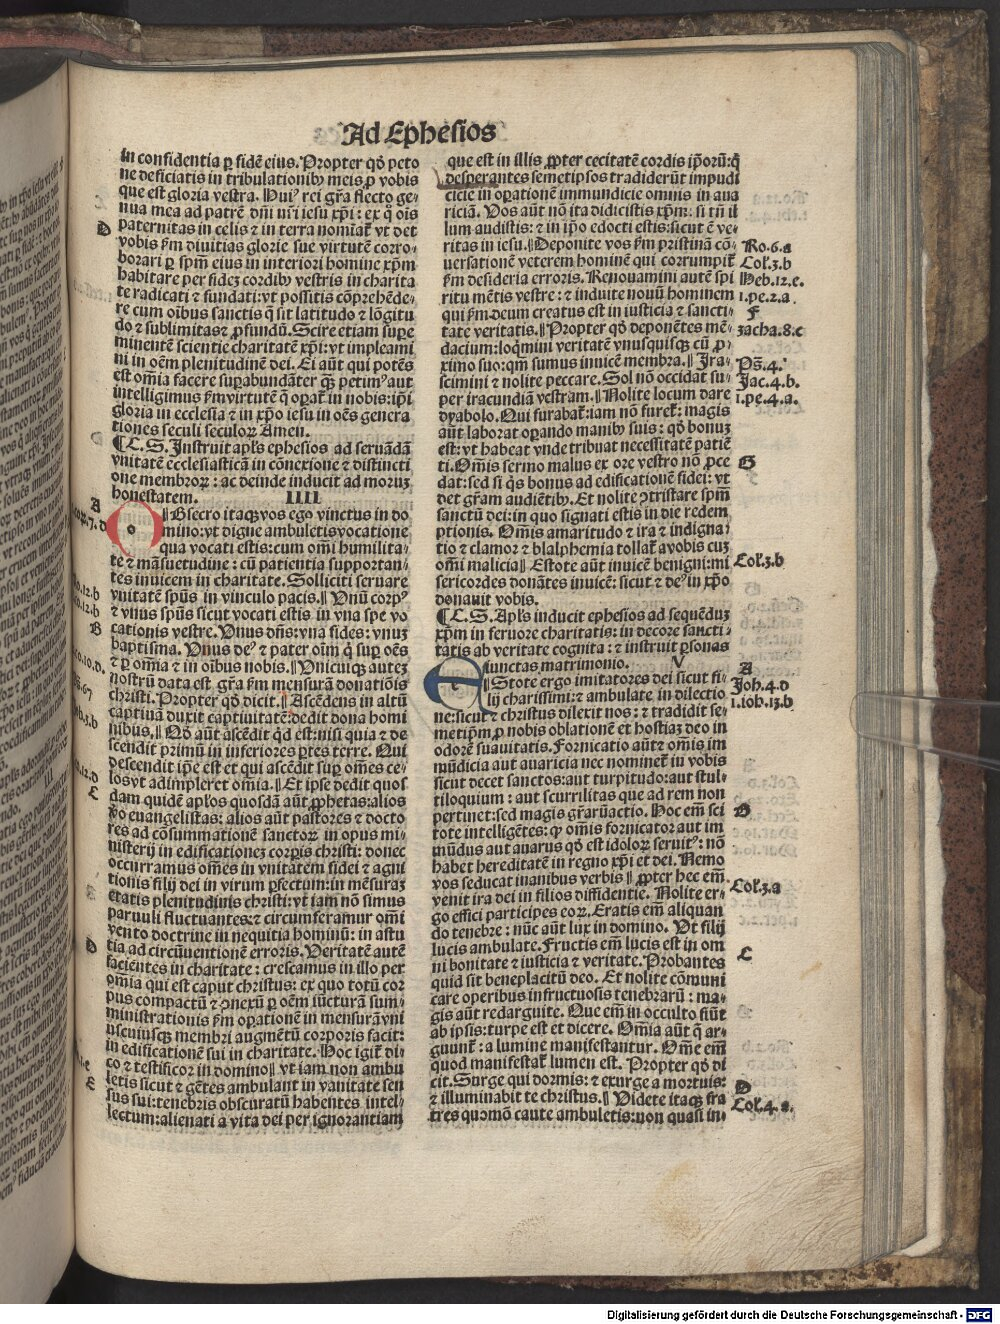 Ad Ephesios
in confidentia ꝑ fidē eius. Propter qḋ peto
ne deficiatis in tribulationibꝰ meis ꝓ vobis
que est gloria vestra. Huiꝰ rei gr̄a flecto ge⸗
nua mea ad patrē dn̄i nr̄i iesu xp̄i: ex q̄ oīs
D
paternitas in celis ⁊ in terra nominat̄ vt det
vobis ẜm diuitias glorie sue virtutē corro⸗
borari ꝑ spm̄ eius in interiori homine xp̄m
habitare per fideꝫ cordibꝰ vestris in charita
te radicati ⁊ fundati: vt possitis cōprehēde⸗
re cum oībus sanctis q̄ sit latitudo ⁊ lōgitu
do ⁊ sublimitas ⁊ ꝓfundū. Scire etiam suꝑe
minentē scientie charitatē xp̄i: vt impleami
ni in oēm plenitudinē dei. Ei aūt qui potēs
est om̄ia facere suꝑabundāter q̄ꝫ petimꝰ aut
intelligimus ẜm virtutē q̄ oꝑat̄ in nobis: ip̄i
gloria in ecclesia ⁊ in xp̄o iesu in oēs genera
tiones seculi seculoꝝ Amen.
¶ C. S. Instruit apl̄s ephesios ad seruādā
vnitatē ecclesiasticā in cōnexione ⁊ distincti
one membroꝝ: ac deinde inducit ad moruꝫ
honestatem. IIII
A
O Bsecro itaqꝫ vos ego vinctus in do
mino: vt digne ambuletis vocatione
qua vocati estis: cum om̄i humilita⸗
te ⁊ māsuetudine: cū patientia supportan⸗
tes inuicem in charitate. Solliciti seruare
vnitatē spūs in vinculo pacis. Vnū corpꝰ
⁊ vnus spūs sicut vocati estis in vna spe vo
B
cationis vestre. Vnus dn̄s: vna fides: vnuꝫ
baptisma. Vnus deꝰ ⁊ pater oīm q̄ suꝑ oēs
⁊ ꝑ om̄ia ⁊ in oībus nobis. Vnicuiqꝫ auteꝫ
nostrū data est gr̄a ẜm mensurā donatiōis
christi. Propter qḋ dicit. Ascēdens in altū
captiuā duxit captiuitatē: dedit dona homi
nibus. Qḋ aūt ascēdit qd̄ est: nisi quia ⁊ de
scendit primū in inferiores ꝑtes terre. Qui
descendit ip̄e est et qui ascēdit suꝑ om̄es ce⸗
los vt adimpleret om̄ia. Et ipse dedit quos
C
dam quidē apl̄os quosdā aūt ꝓphetas: alios
v̄o euangelistas: alios aūt pastores ⁊ docto
res ad cōsummationē sanctoꝝ in opus mi⸗
nisterij in edificationeꝫ corꝑis christi: donec
occurramus om̄es in vnitatem fidei ⁊ agni
tionis filij dei in virum ꝑfectum: in mēsuraꝫ
etatis plenitudinis christi: vt iam nō simus
paruuli fluctuantes: ⁊ circumferamur om̄i
vento doctrine in nequitia hominū: in astu
D
tia ad circūuentionē erroris. Veritatē autē
facientes in charitate: crescamus in illo per
om̄ia qui est caput christus: ex quo totū cor
pus compactū ⁊ ꝯnexū ꝑ oēm iūcturā sum⸗
ministrationis ẜm oꝑationē in mensurā vni
uscuiusqꝫ membri augmētū corporis facit:
in edificationē sui in charitate. Hoc igit̄ di⸗
co ⁊ testificor in domino vt iam non ambu
E
letis sicut ⁊ gētes ambulant in vanitate sen
sus sui: tenebris obscuratū habentes intel⸗
lectum: alienati a vita dei per ignorantiam
que est in illis ꝓpter cecitatē cordis ip̄oꝝ: q̄
desperantes semetipsos tradiderūt impudi
cicie in oꝑationē immundicie omnis in aua
riciā. Vos aūt nō ita didicistis xp̄m: si tn̄ il
lum audistis: ⁊ in ip̄o edocti estis: sicut ē ve⸗
ritas in iesu. Deponite vos ẜm pristinā cō⸗
Ro.6.a
uersationē veterem hominē qui corrumpit̄
Col.3.b
ẜm desideria erroris. Renouamini autē spi
Heb.12.e.
ritu mētis vestre: ⁊ induite nouū hominem
1.pe.2.a
qui ẜm deum creatus est in iusticia ⁊ sancti⸗
F
tate veritatis. Propter qḋ deponētes mē⸗
zacha.8.c
dacium: loq̄mini veritatē vnusquisqꝫ cū ꝓ⸗
ximo suo: qm̄ sumus inuicē membra. Ira⸗
Ps.4.
scimini ⁊ nolite peccare. Sol nō occidat su⸗
Jac.4.b.
per iracundiā vestram. Nolite locum dare
1.pe.4.a.
dyabolo. Qui furabat̄: iam nō furet̄: magis
aūt laborat oꝑando manibꝰ suis: qḋ bonuꝫ
est: vt habeat vnde tribuat necessitatē patiē
ti. Om̄is sermo malus ex ore vestro nō ꝓce
G
dat: sed si q̄s bonus ad edificationē fidei: vt
det gr̄am audiētibꝰ. Et nolite ꝯtristare spm̄
sanctū dei: in quo signati estis in die redem
ptionis. Om̄is amaritudo ⁊ ira ⁊ indigna⸗
tio ⁊ clamor ⁊ blasphemia tollat̄ a vobis cuꝫ
om̄i malicia Estote aūt inuicē benigni: mi
Col.3.b
sericordes donātes inuicē: sicut ⁊ deꝰ in xp̄o
donauit vobis.
¶ C. S. Apl̄s inducit ephesios ad seq̄ēduꝫ
xp̄m in feruore charitatis: in decore sancti⸗
tatis ab veritate cognita: ⁊ instruit ꝑsonas
iunctas matrimonio. V
A
E Stote ergo imitatores dei sicut fi⸗
Joh.4.d
lij charissimi: ⁊ ambulate in dilectio
1.ioh.13.b
ne: sicut ⁊ christus dilexit nos: ⁊ tradidit se⸗
metip̄m ꝓ nobis oblationē et hostiaꝫ deo in
odorē suauitatis. Fornicatio aūt: om̄is im
mūdicia aut auaricia nec nominet̄ in vobis
sicut decet sanctos: aut turpitudo: aut stul⸗
tiloquium: aut scurrilitas que ad rem non
pertinet: sed magis gr̄aꝝ actio. Hoc em̄ sci
B
tote intelligētes: ꝙ om̄is fornicator aut im
mūdus aut auarus qḋ est idoloꝝ seruitꝰ: nō
habet hereditatē in regno xp̄i et dei. Nemo
vos seducat inanibus verbis ꝓpter hec em̄
Col.3.a
venit ira dei in filios diffidentie. Nolite er⸗
go effici participes eoꝝ. Eratis em̄ aliquan
do tenebre: nūc aūt lux in domino. Vt filij
lucis ambulate. Fructꝰ em̄ lucis est in om
C
ni bonitate ⁊ iusticia ⁊ veritate. Probantes
quid sit beneplacitū deo. Et nolite cōmuni
care operibus infructuosis tenebraꝝ: ma⸗
gis aūt redarguite. Que em̄ in occulto fiūt
ab ipsis: turpe est et dicere. Om̄ia aūt q̄ ar⸗
guunt̄: a lumine manifestantur. Om̄e em̄
quod manifestat̄ lumen est. Propter qḋ di
cit. Surge qui dormis: ⁊ exurge a mortuis:
D
⁊ illuminabit te christus. Videte itaqꝫ fra
Col.4.a.
tres quomō caute ambuletis: non quasi in⸗
Digitalisierung gefördert durch die Deutsche Forschungsgemeinschaft - DFG